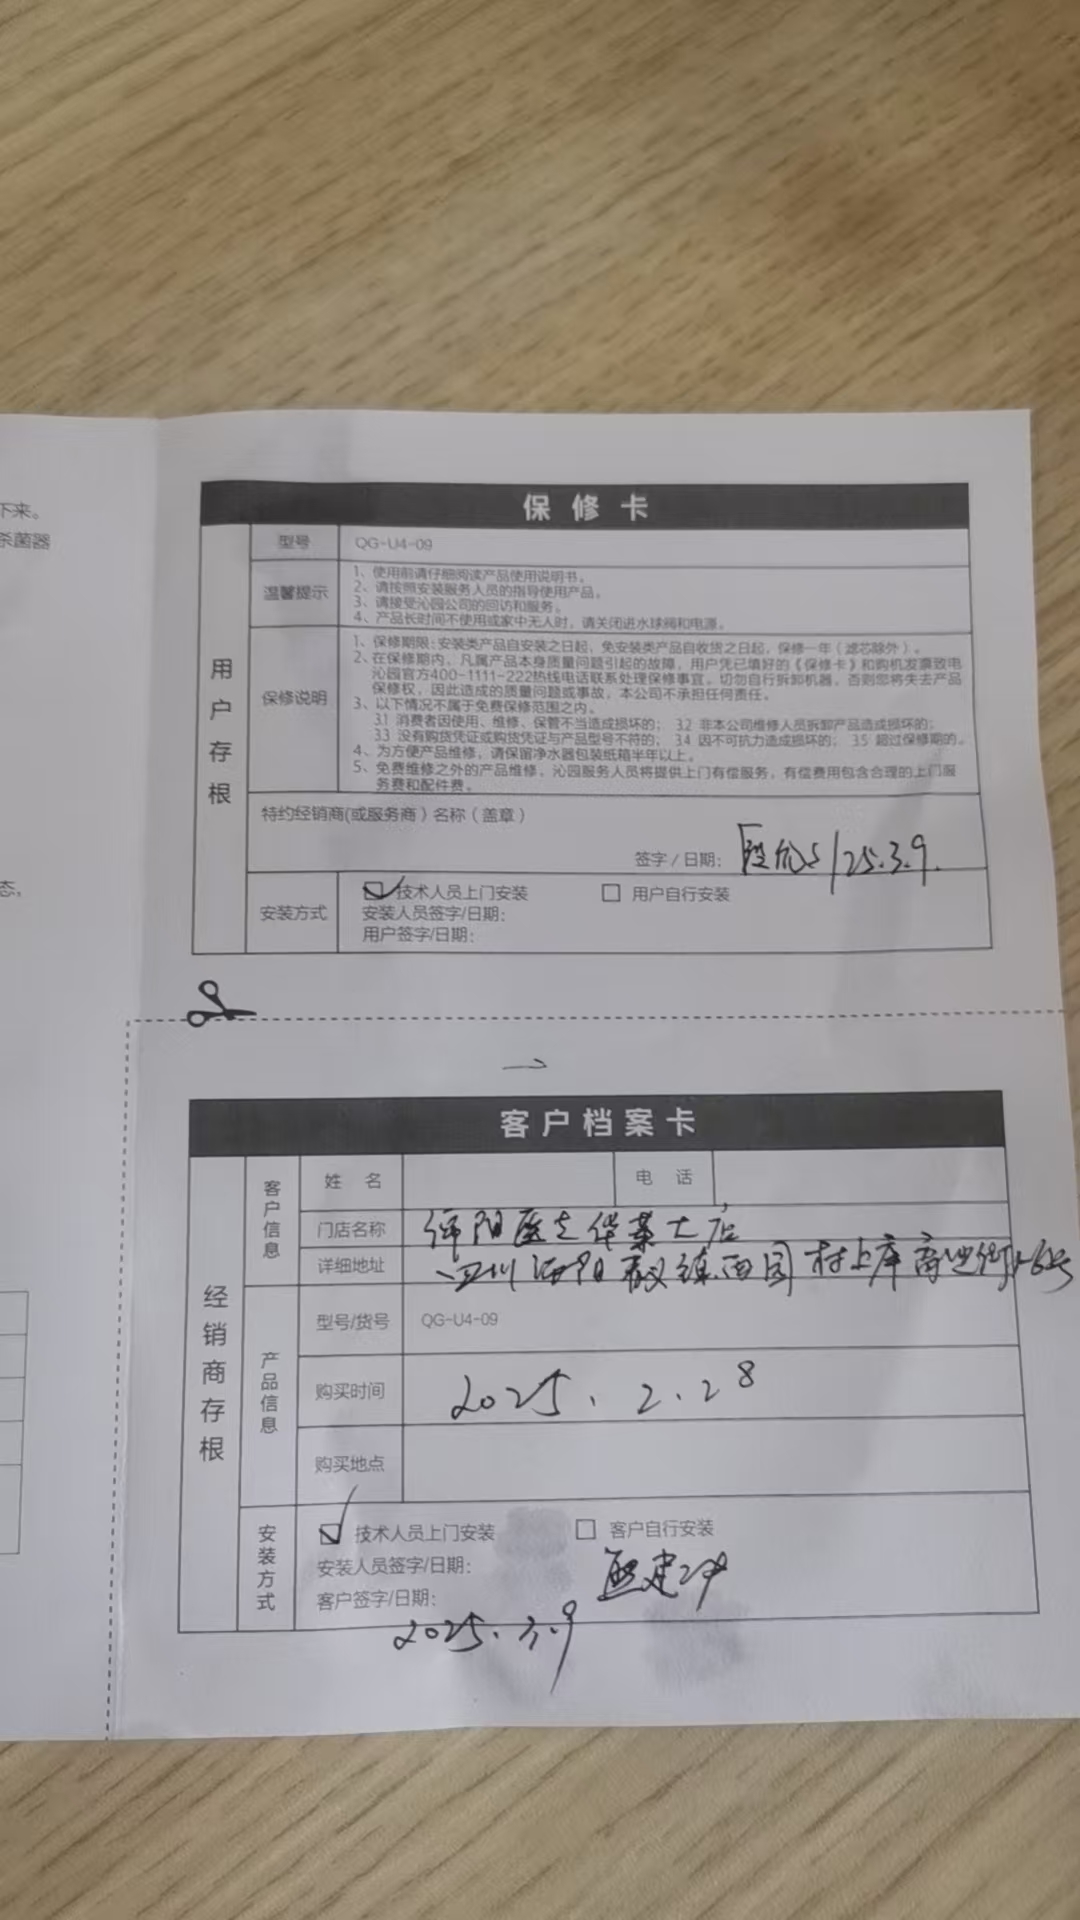 下来。
杀菌器
态，
保修卡
用户存根
型号 QG-U4-09
温馨提示
1、使用前请仔细阅读产品使用说明书。
2、请按照安装服务人员的指导使用产品。
3、请接受沁园公司的回访和服务。
4、产品长时间不使用或家中无人时，请关闭进水球阀和电源。
保修说明
1、保修期限：安装类产品自安装之日起，免安装类产品自收货之日起，保修一年（滤芯除外）。
2、在保修期内，凡属产品本身质量问题引起的故障，用户凭已填好的《保修卡》和购机发票致电
沁园官方400-1111-222热线电话联系处理保修事宜。切勿自行拆卸机器，否则您将失去产品
保修权，因此造成的质量问题或事故，本公司不承担任何责任。
3、以下情况不属于免费保修范围之内。
3.1 消费者因使用、维修、保管不当造成损坏的； 3.2 非本公司维修人员拆卸产品造成损坏的；
3.3 没有购货凭证或购货凭证与产品型号不符的； 3.4 因不可抗力造成损坏的； 3.5 超过保修期的。
4、为方便产品维修，请保留净水器包装纸箱半年以上。
5、免费维修之外的产品维修，沁园服务人员将提供上门有偿服务，有偿费用包含合理的上门服
务费和配件费。
特约经销商(或服务商）名称（盖章）
签字/日期： 25.3.9.
安装方式
技术人员上门安装 用户自行安装
安装人员签字/日期：
用户签字/日期：
客户档案卡
经销商存根
客户信息
姓名 电话
门店名称
详细地址
产品信息
型号/货号 QG-U4-09
购买时间 2025.2.28
购买地点
安装方式
技术人员上门安装 客户自行安装
安装人员签字/日期：
客户签字/日期：
2025.3.9